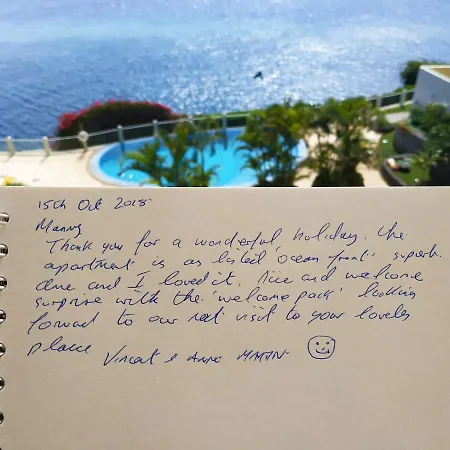 15th Oct 2018
Manny
Thank you for a wonderful holiday. the
apartment is as listed 'ocean front' superb.
Anne and I loved it. Nice and welcome
surprise with the 'welcome pack' looking
forward to our next visit to your lovely
place Vincent & Anne